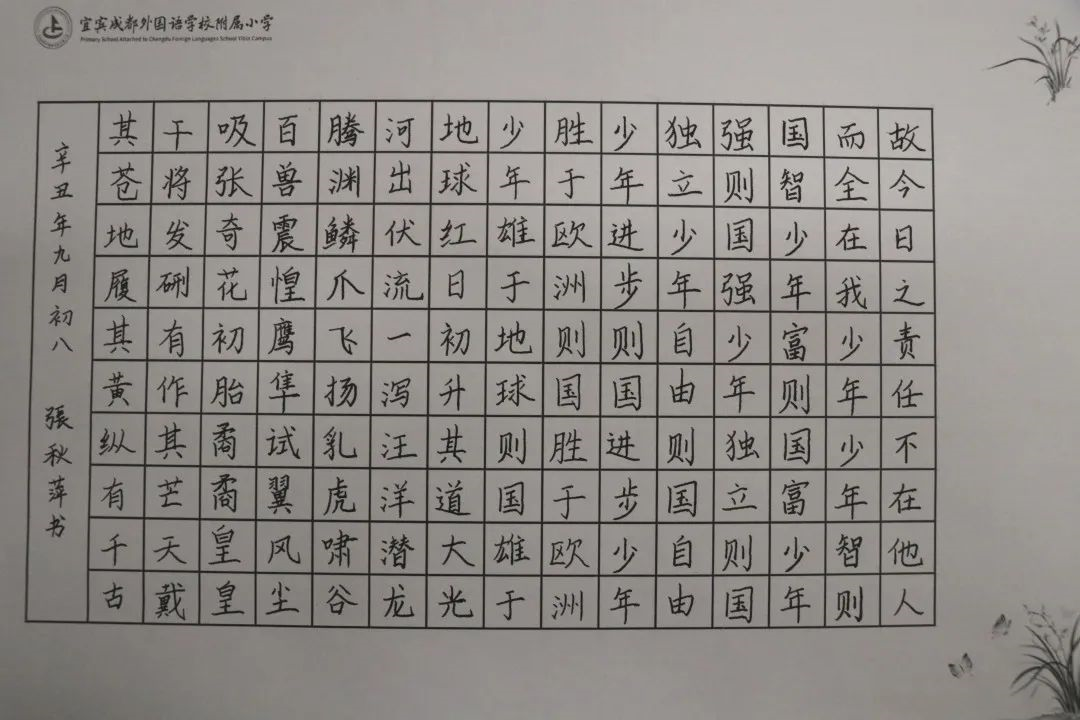 宜宾成都外国语学校附属小学
Primary School Attached to Chengdu Foreign Languages School Yibin Campus
故今日之责任不在他人
而全在我少年少年智则
国智少年富则国富少年
强则国强少年独立则国
独立少年自由则国自由
少年进步则国进步少年
胜于欧洲则国胜于欧洲
少年雄于地球则国雄于
地球红日初升其道大光
河出伏流一泻汪洋潜龙
腾渊鳞爪飞扬乳虎啸谷
百兽震惶鹰隼试翼风尘
吸张奇花初胎矞矞皇皇
干将发硎有作其芒天戴
其苍地履其黄纵有千古
辛丑年九月初八 張秋萍书